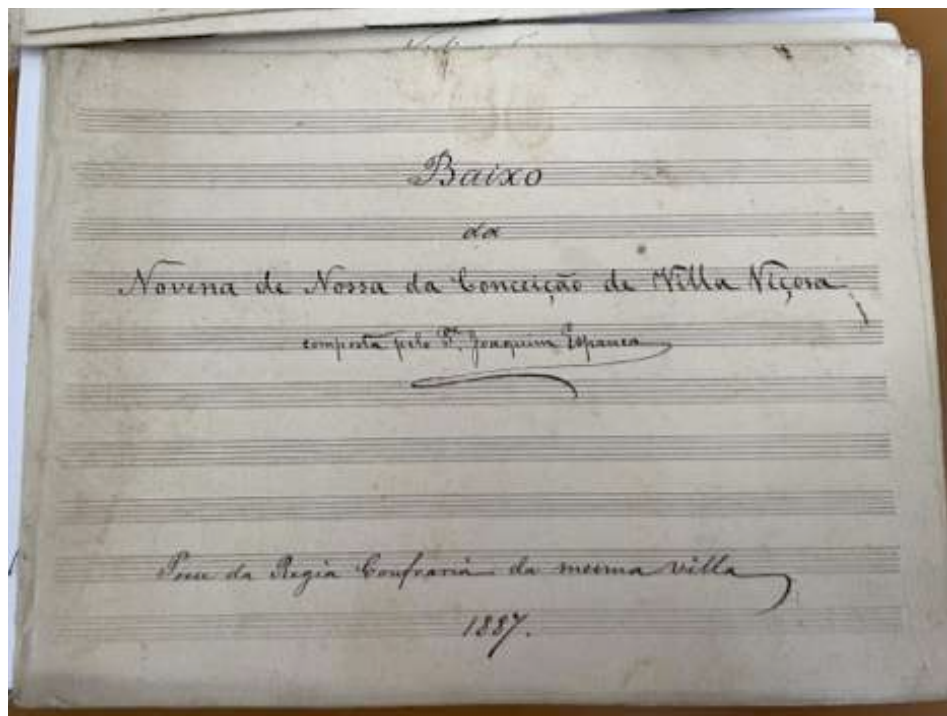 Baixo
da
Novena de Nossa da Conceição de Villa Viçosa
composta pelo Pe. Joaquim Espanca
Posse da Regia Confraria da mesma villa
1887.